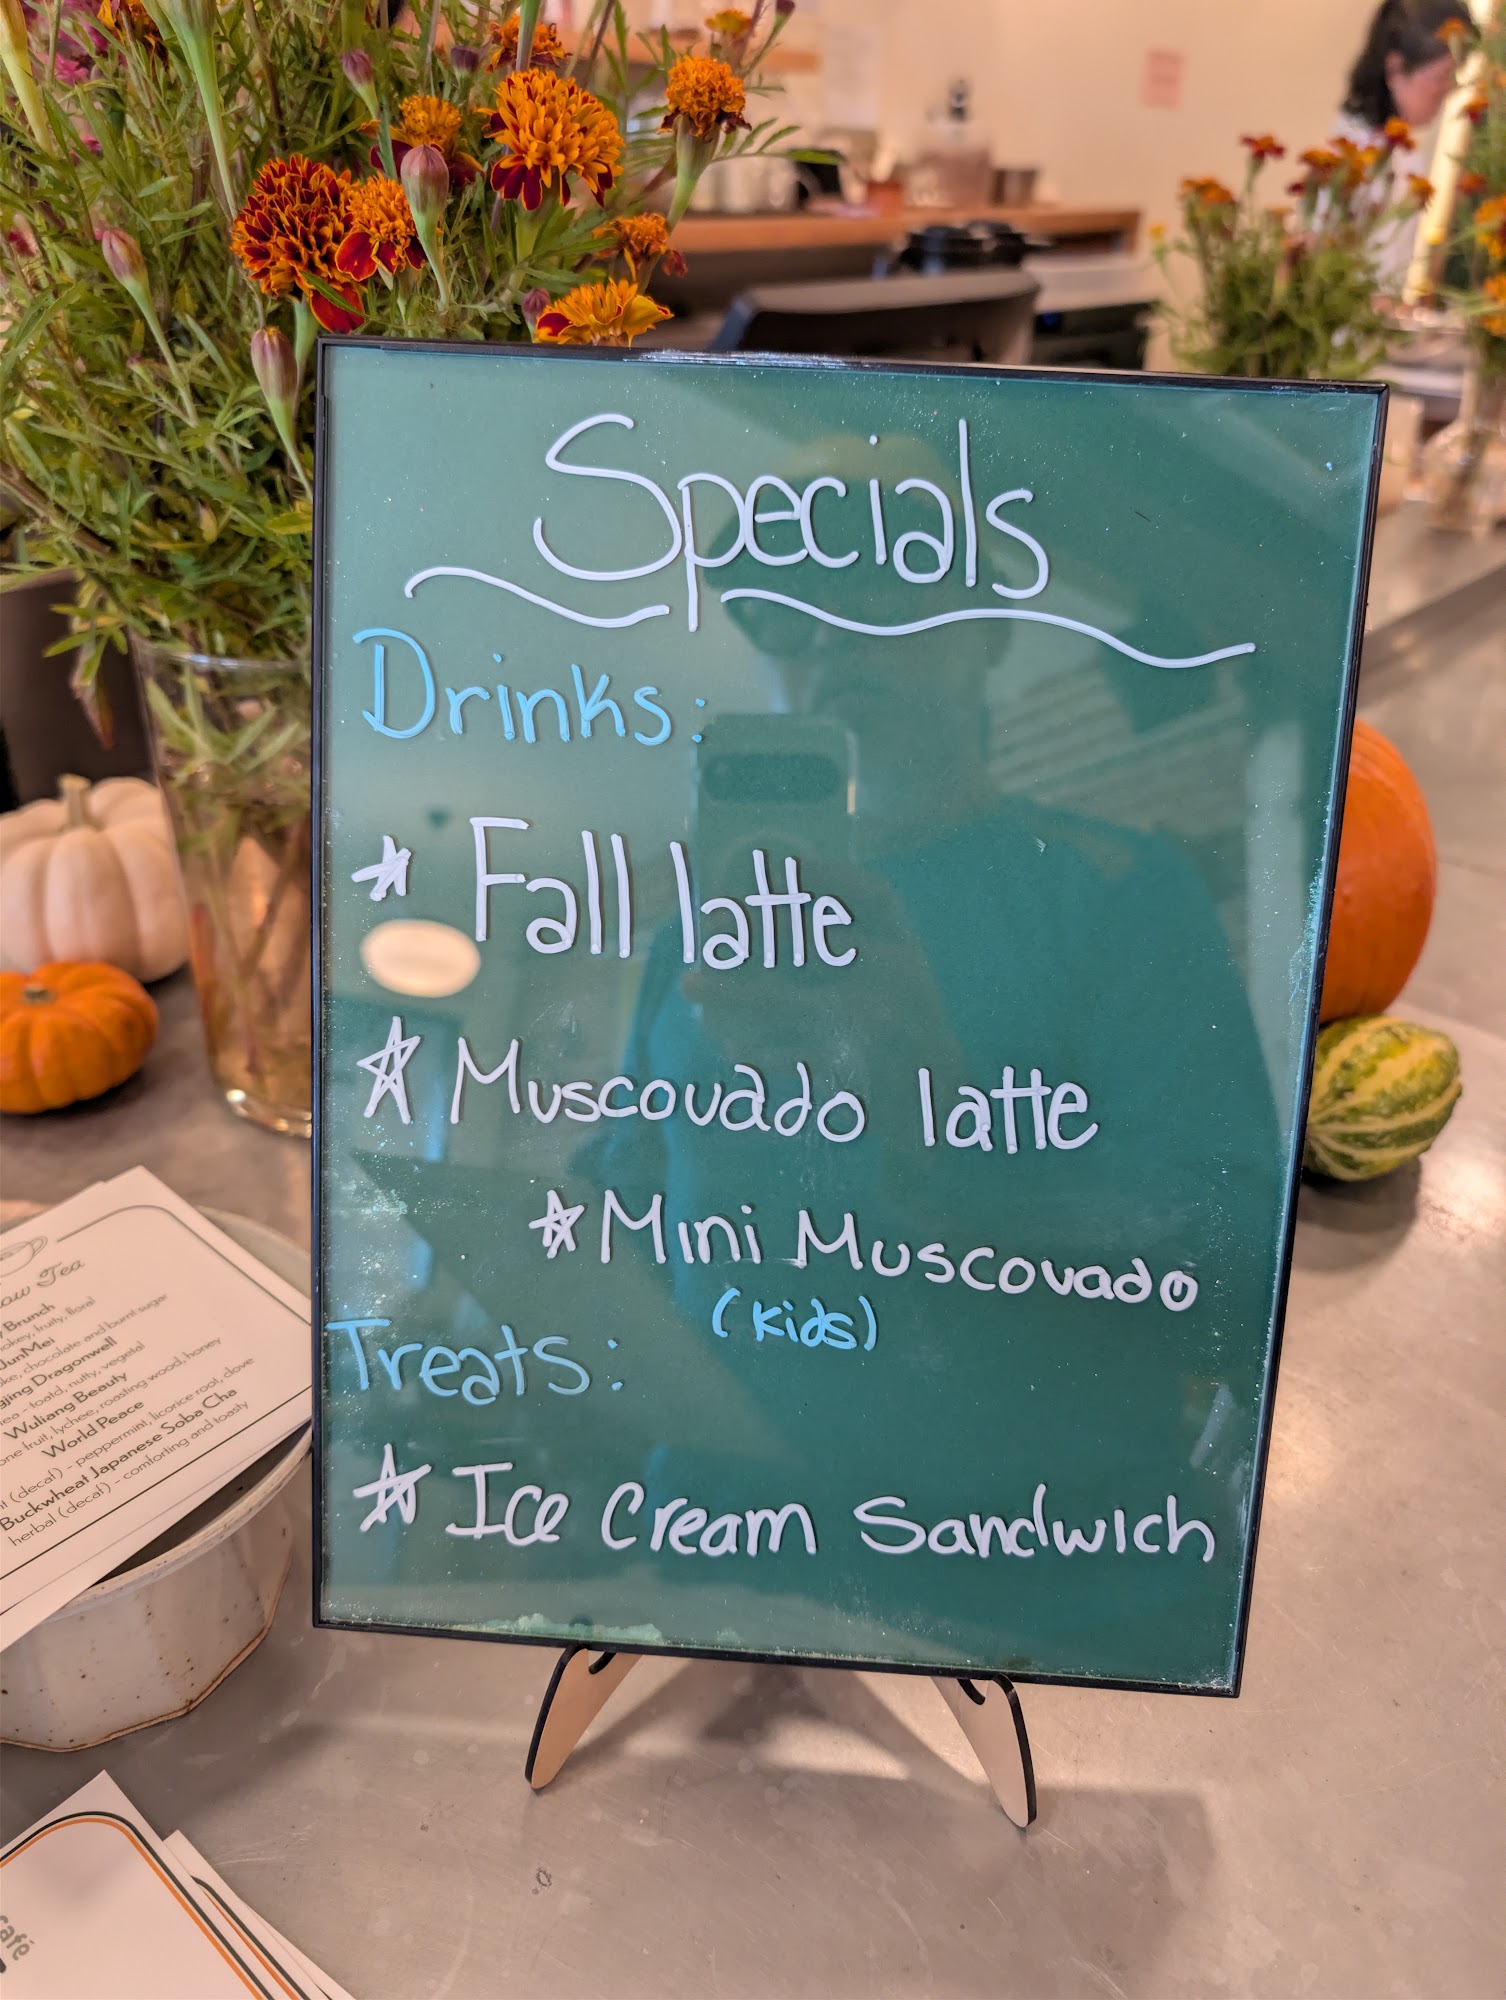 Specials
Drinks:
Fall latte
Muscovado latte
Mini Muscovado
(kids)
Treats:
Ice Cream Sandwich
Tea
Brunch
fruity, floral
JunMei
chocolate and burnt sugar
Dragonwell
nutty, vegetal
Wuliang Beauty
fruit, lychee, roasting wood, honey
World Peace
(decaf) - peppermint, licorice root, clove
Buckwheat Japanese Soba Cha
herbal (decaf) - comforting and toasty
café